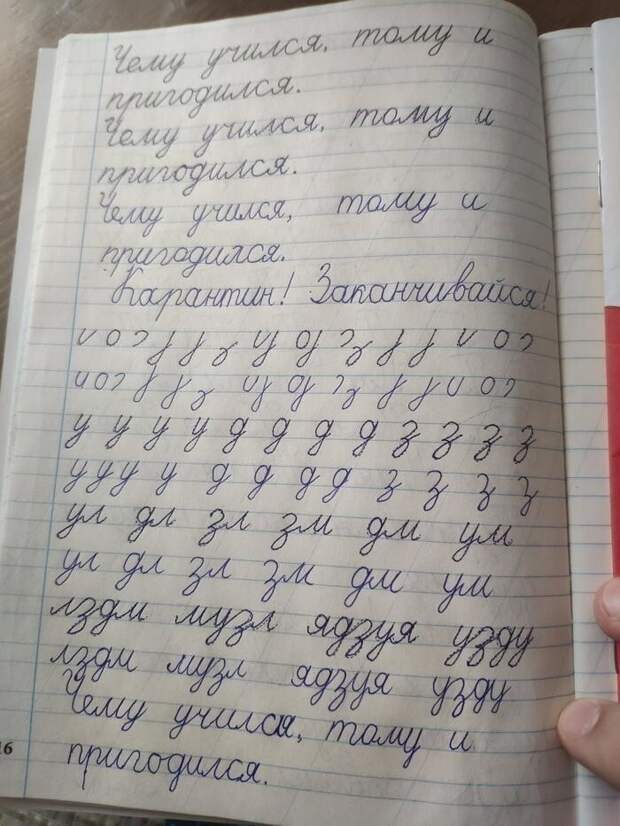 Чему учился, тому и
пригодился.
Чему учился, тому и
пригодился.
Чему учился, тому и
пригодился.
Карантин! Заканчивайся!
у у у у д д д д з з з з
у у у у д д д д з з з з
ул дл зл зм дм ум
ул дл зл зм дм ум
лздм музл ядзуя узду
лздм музл ядзуя узду
Чему учился, тому и
16
пригодился.